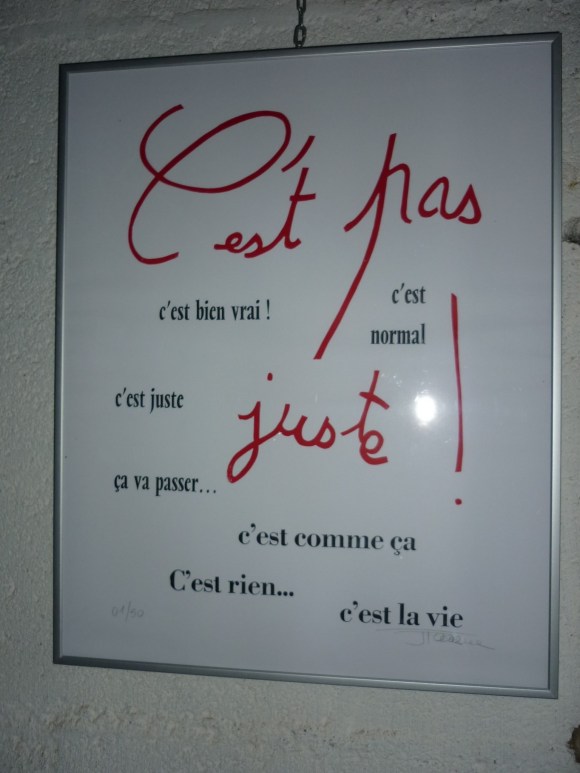 C'est pas
c'est bien vrai !
c'est
normal
c'est juste
juste !
ça va passer...
c'est comme ça
C'est rien...
c'est la vie